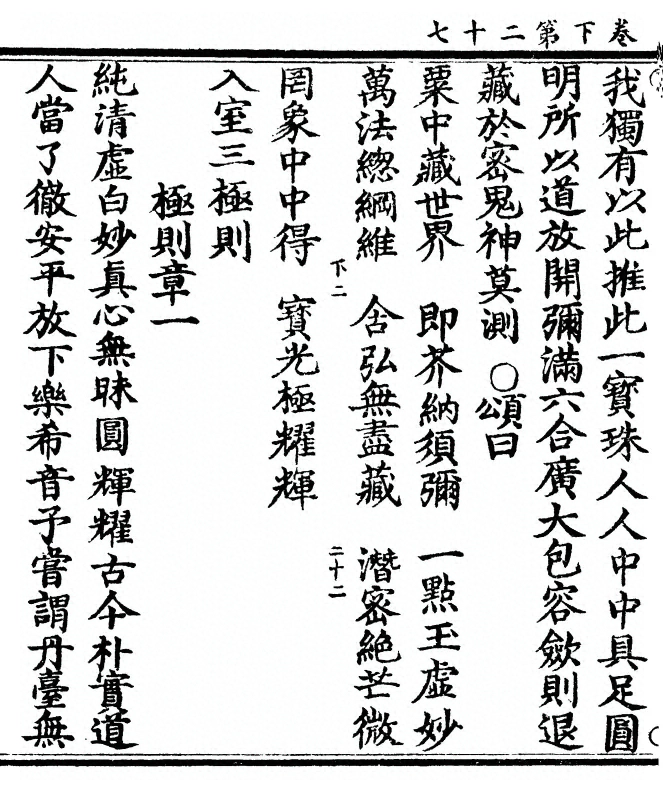 卷下第二十七
我獨有以此推此一寶珠人人中中具足圓
明所以道放開彌滿六合廣大包容斂則退
藏於密鬼神莫測 〇頌曰
粟中藏世界 即芥納須彌 一點玉虛妙
萬法總綱維 含弘無盡藏 潛密絶芒微
下二 二十二
罔象中中得 寶光極耀輝
入室三極則
極則章一
純清虛白妙真心無昧圓輝耀古今朴實道
人當了徹安平放下樂希音予嘗謂丹臺無